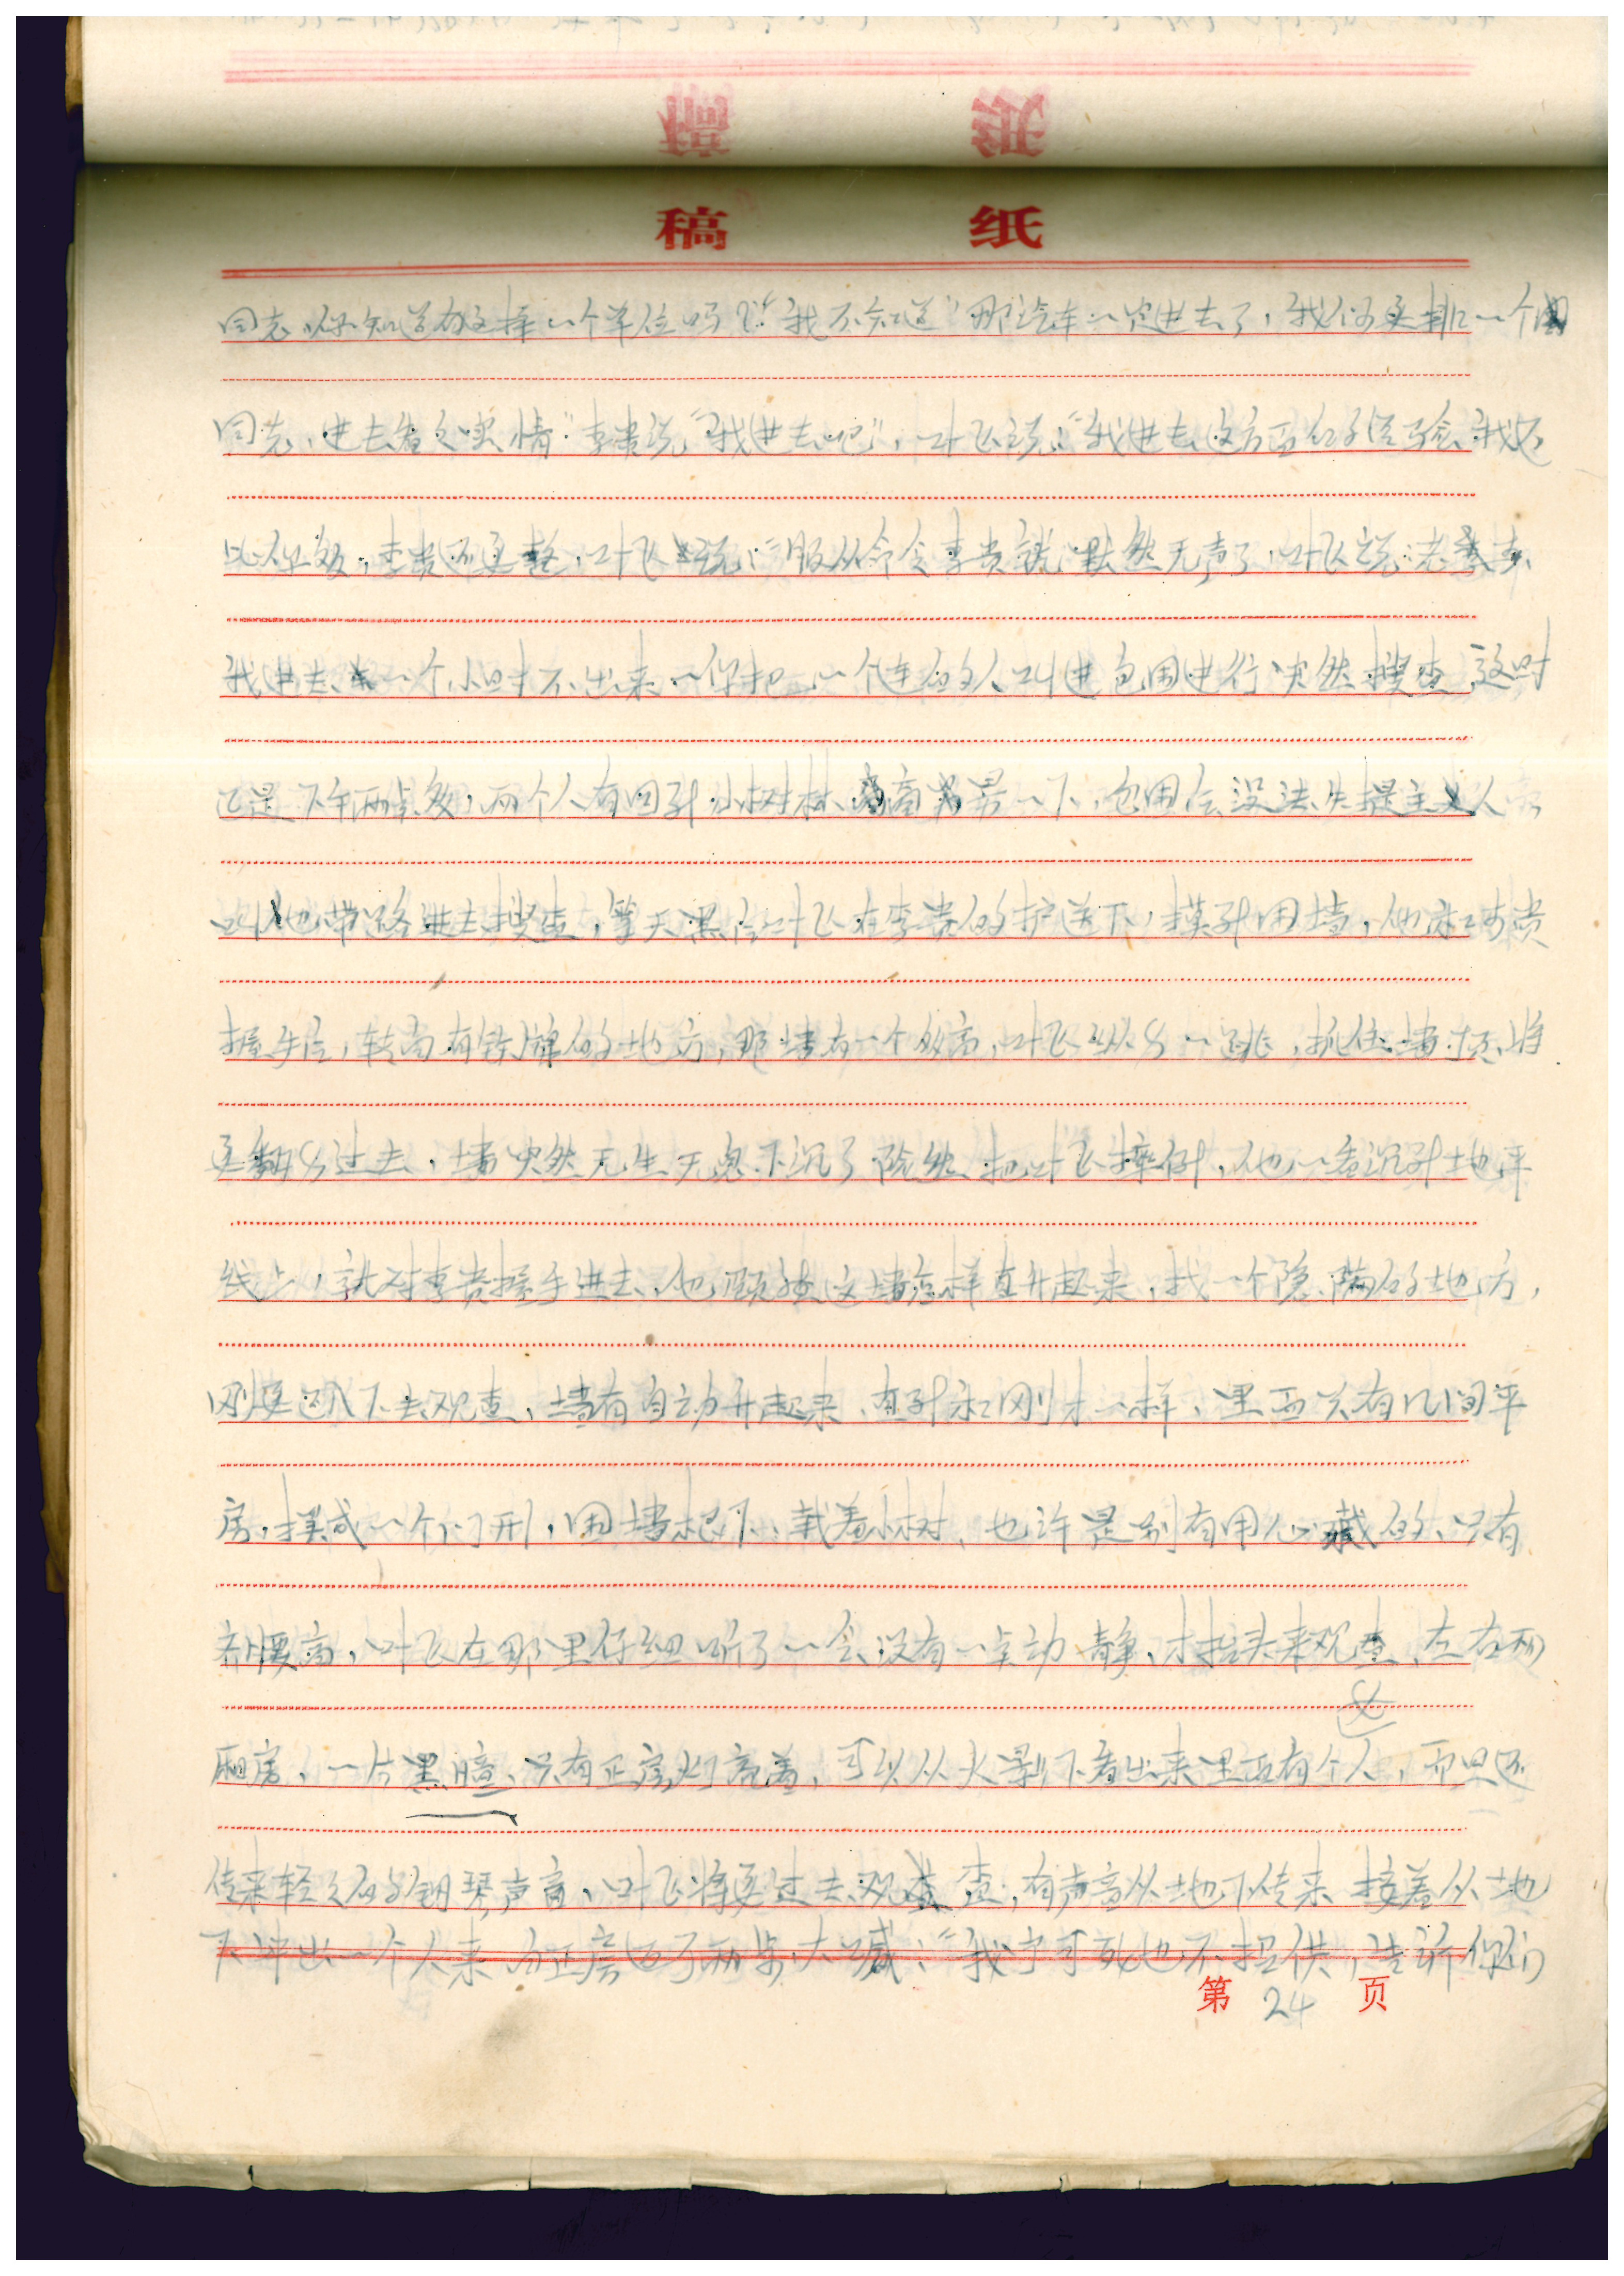 稿 纸
同志,你知道有这样一个单位吗?”“我不知道”“那汽车一定进去了,我们要排一个
同志,进去看之实情”李贵说“我进去吧”,叶飞说:“我进去这方面的经验我还
比你多,李贵还要,叶飞说:“服从命令李贵就默然无声了,叶飞说:老李
我进去一个小时不出来,你把一个连的人叫进包围进行突然搜查,这时
已是下午两点多,两个人有回到小树林商一下,包围后没法先提主人
叫他带路进去搜查,等天黑后叶飞在李贵的护送下,摸到围墙,他和李贵
握手后,转向有铁牌的地方,那墙有一个多高,叶飞纵身一跳,抓住墙顶,将
要翻身过去,墙突然无生无息下沉了险些把叶飞摔倒,他一看沉到地平
线上,就对李贵握手进去,他顾查这墙怎样直升起来,找一个隐蔽的地方,
刚要趴下去观查,墙有自动升起来,直到和刚才一样,里面只有几间平
房,摆成一个门形,围墙根下,栽着小树,也许是别有用心藏的,只有
齐腰高,叶飞在那里仔细听了一会没有一点动静,才抬头来观查,左右两
厢房,一片黑暗,只有正房灯亮着,可以从火影下看出来里面有个女人,而且还
传来轻之的钢琴声音,叶飞将要过去观查,有声音从地下传来接着从地
下冲出一个人来向正房迈了两步,大喊:“我宁可死也不招供,告诉你们
第 24 页